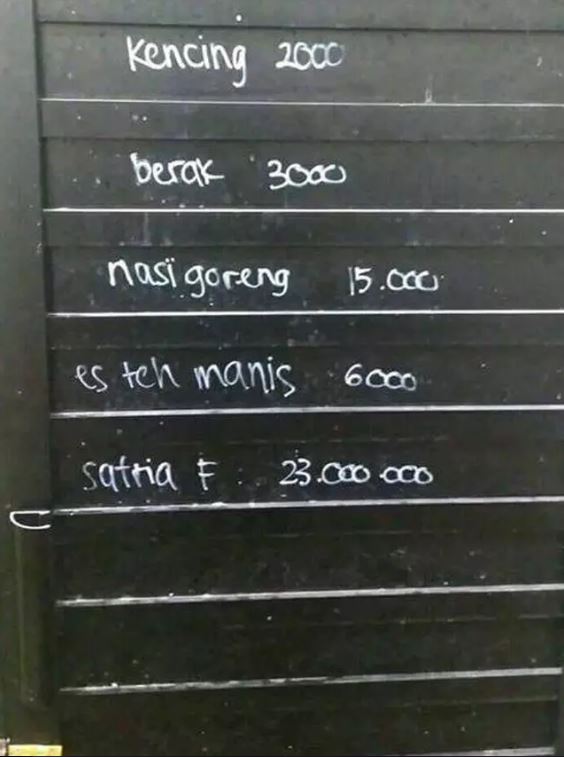 Kencing 2000
berak 3000
nasi goreng 15.000
es teh manis 6000
satria F. 23.000.000